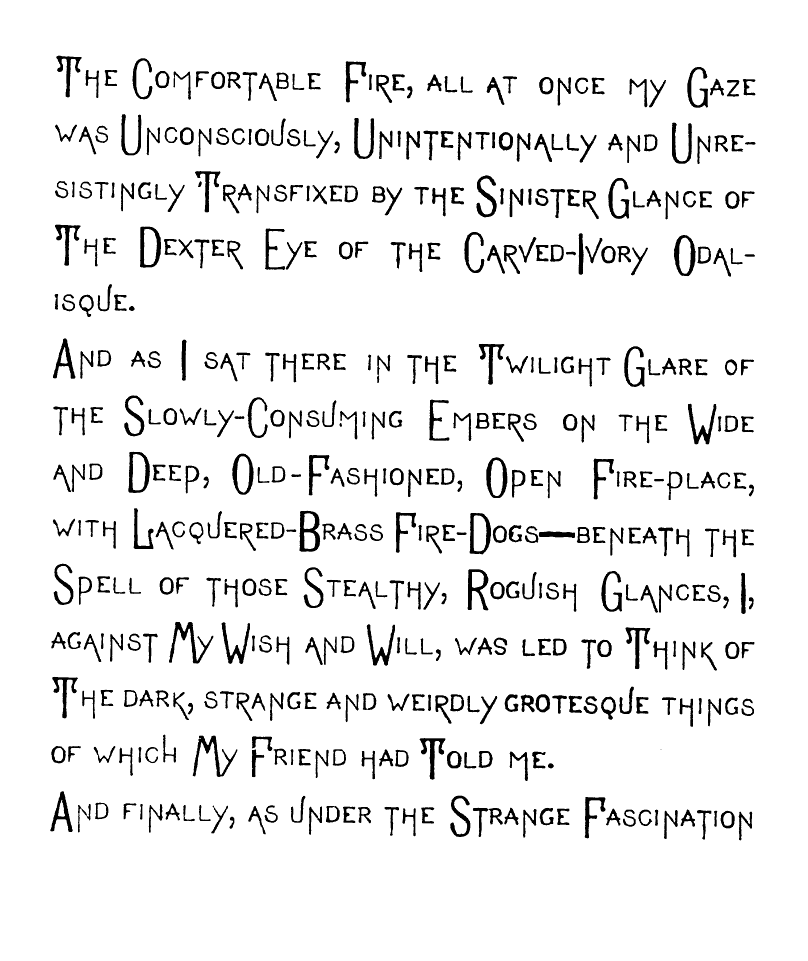 The Comfortable Fire, all at once my Gaze
was Unconsciously, Unintentionally and Unre-
sistingly Transfixed by the Sinister Glance of
The Dexter Eye of the Carved-Ivory Odal-
isque.
And as I sat there in the Twilight Glare of
the Slowly-Consuming Embers on the Wide
and Deep, Old-Fashioned, Open Fire-place,
with Lacquered-Brass Fire-Dogs—beneath the
Spell of those Stealthy, Roguish Glances, I,
against My Wish and Will, was led to Think of
The dark, strange and weirdly grotesque things
of which My Friend had Told me.
And finally, as under the Strange Fascination